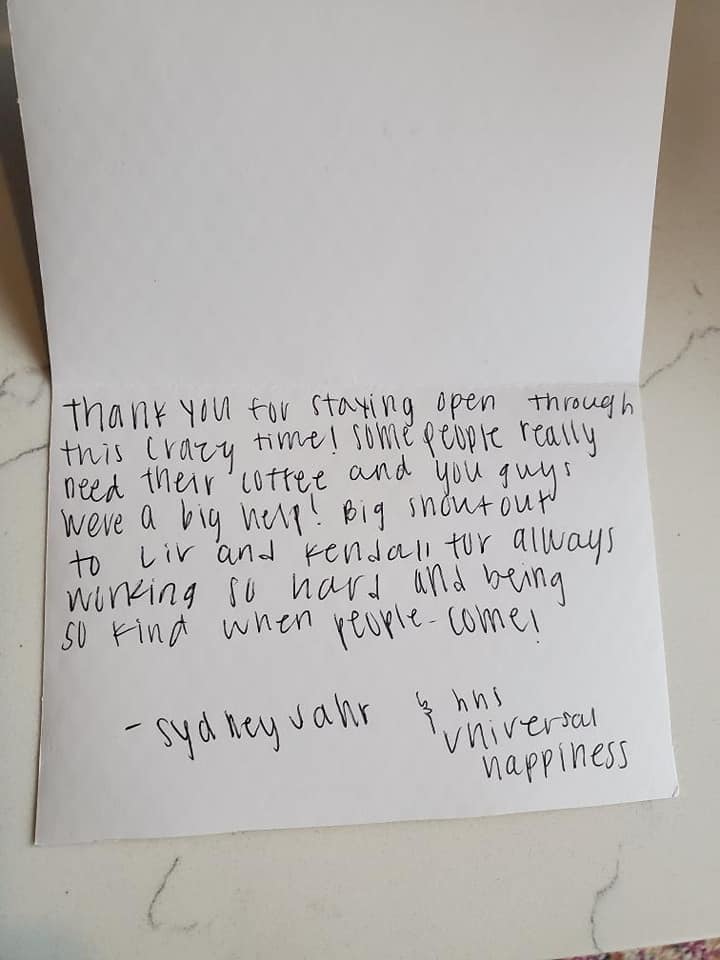 thank you for staying open through
this crazy time! some people really
need their coffee and you guys
were a big help! Big shoutout
to Liv and Kendall for always
working so hard and being
so kind when people come!
- sydney Jahr & hhs
universal
happiness